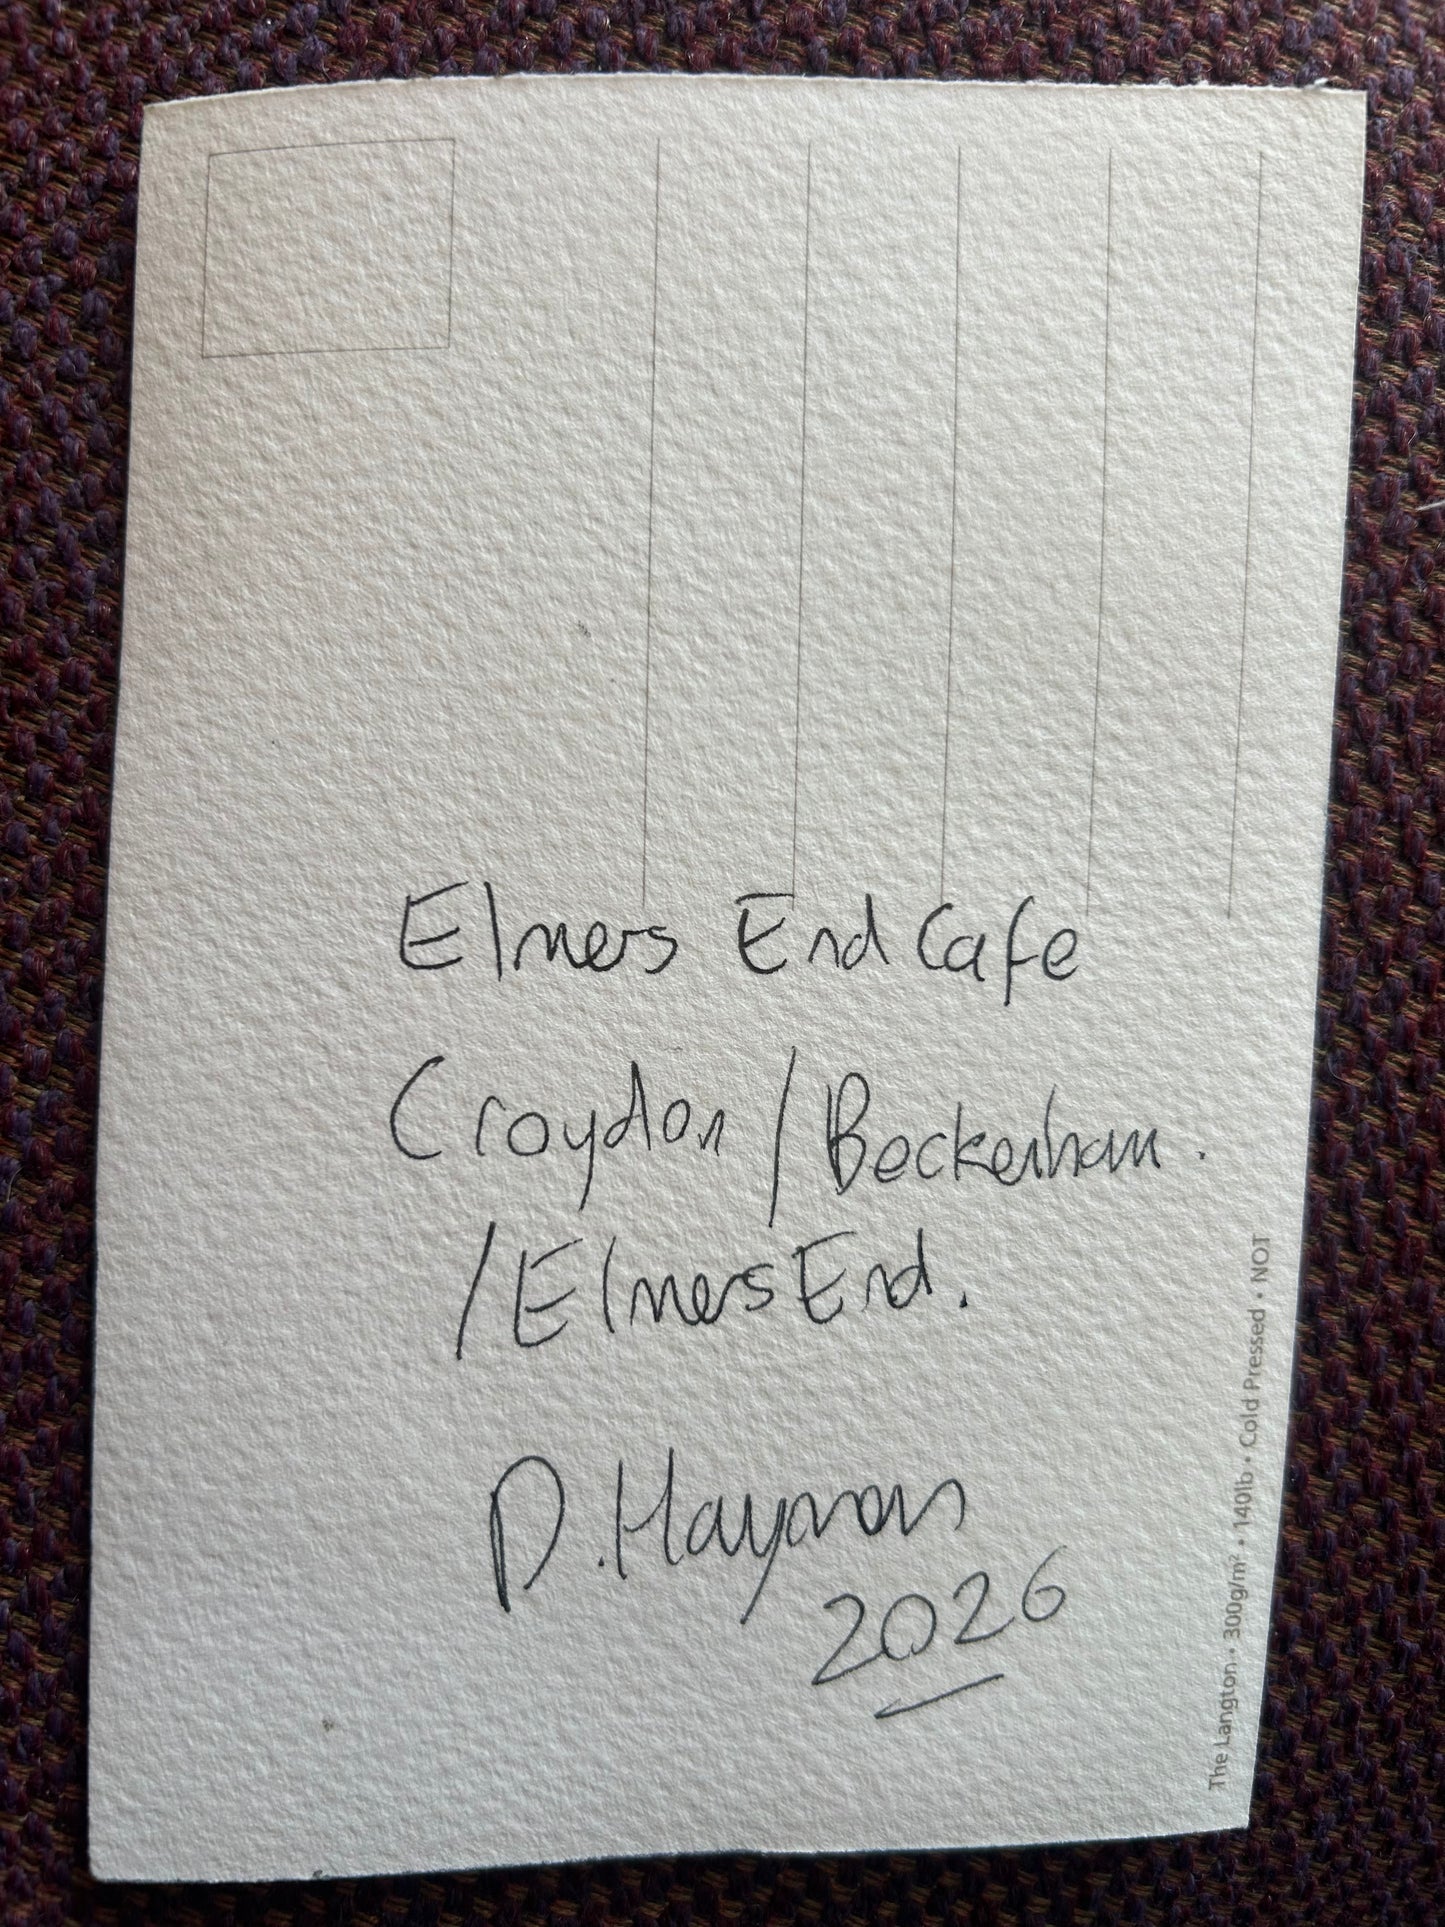 Elmers End Cafe
Croydon / Beckenham.
/ Elmers End.
D. Hayman
2026
The Langton • 300g/m² • 140lb • Cold Pressed • NOT